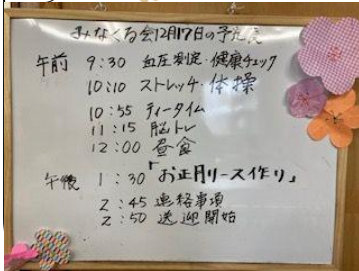 みなくる会12月17日の予定表
午前 9:30 血圧測定・健康チェック
10:10 ストレッチ・体操
10:55 ティータイム
11:15 脳トレ
12:00 昼食
午後 1:30 「お正月リース作り」
2:45 連絡事項
2:50 送迎開始